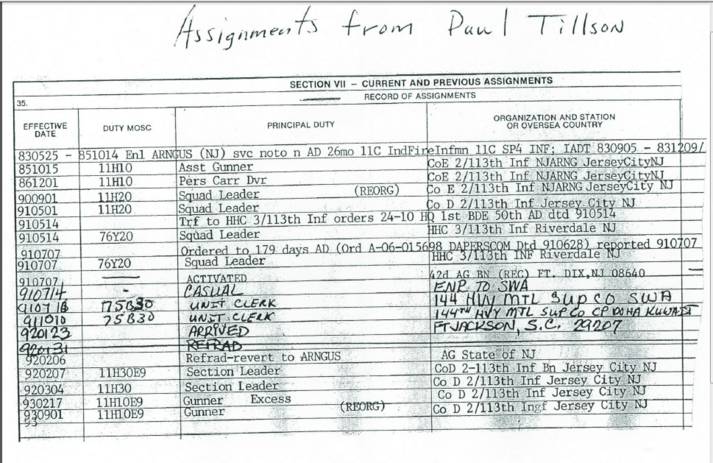 Assignments from Paul Tillson
SECTION VII - CURRENT AND PREVIOUS ASSIGNMENTS
35. RECORD OF ASSIGNMENTS
EFFECTIVE DATE DUTY MOSC PRINCIPAL DUTY ORGANIZATION AND STATION OR OVERSEA COUNTRY
830525 - 851014 Enl ARNGUS (NJ) svc noto n AD 26mo 11C IndFireInfmn 11C SP4 INF; IADT 830905 - 831209/
851015 11H10 Asst Gunner CoE 2/113th Inf NJARNG JerseyCityNJ
861201 11H10 Pers Carr Dvr Co E 2/113th Inf NJARNG JerseyCity NJ
900901 11H20 Squad Leader (REORG) Co E 2/113th Inf NJARNG JerseyCity NJ
910501 11H20 Squad Leader Co D 2/113th Inf Jersey City NJ
910514 Trf to HHC 3/113th Inf orders 24-10 HQ 1st BDE 50th AD dtd 910514
910514 76Y20 Squad Leader HHC 3/113th Inf Riverdale NJ
910707 Ordered to 179 days AD (Ord A-06-015698 DAPERSCOM Dtd 910628) reported 910707
910707 76Y20 Squad Leader HHC 3/113th INF Riverdale NJ
910707 — ACTIVATED 42d AG BN (REC) FT. DIX,NJ 08640
910714 - CASUAL ENR TO SWA
910718 75B30 UNIT CLERK 144 HVY MTL SUP CO SWA
911010 75B30 UNIT CLERK 144TH HVY MTL SUP CO CP DOHA KUWAIT
920123 ARRIVED FT JACKSON, S.C. 29207
920131 REFRAD
920206 Refrad-revert to ARNGUS AG State of NJ
920207 11H30E9 Section Leader CoD 2-113th Inf Bn Jersey City NJ
920304 11H30 Section Leader Co D 2/113th Inf Jersey City NJ
930217 11H10E9 Gunner Excess Co D 2/113th Inf Jersey City NJ
930901 11H10E9 Gunner (REORG) Co D 2/113th Ingf Jersey City NJ